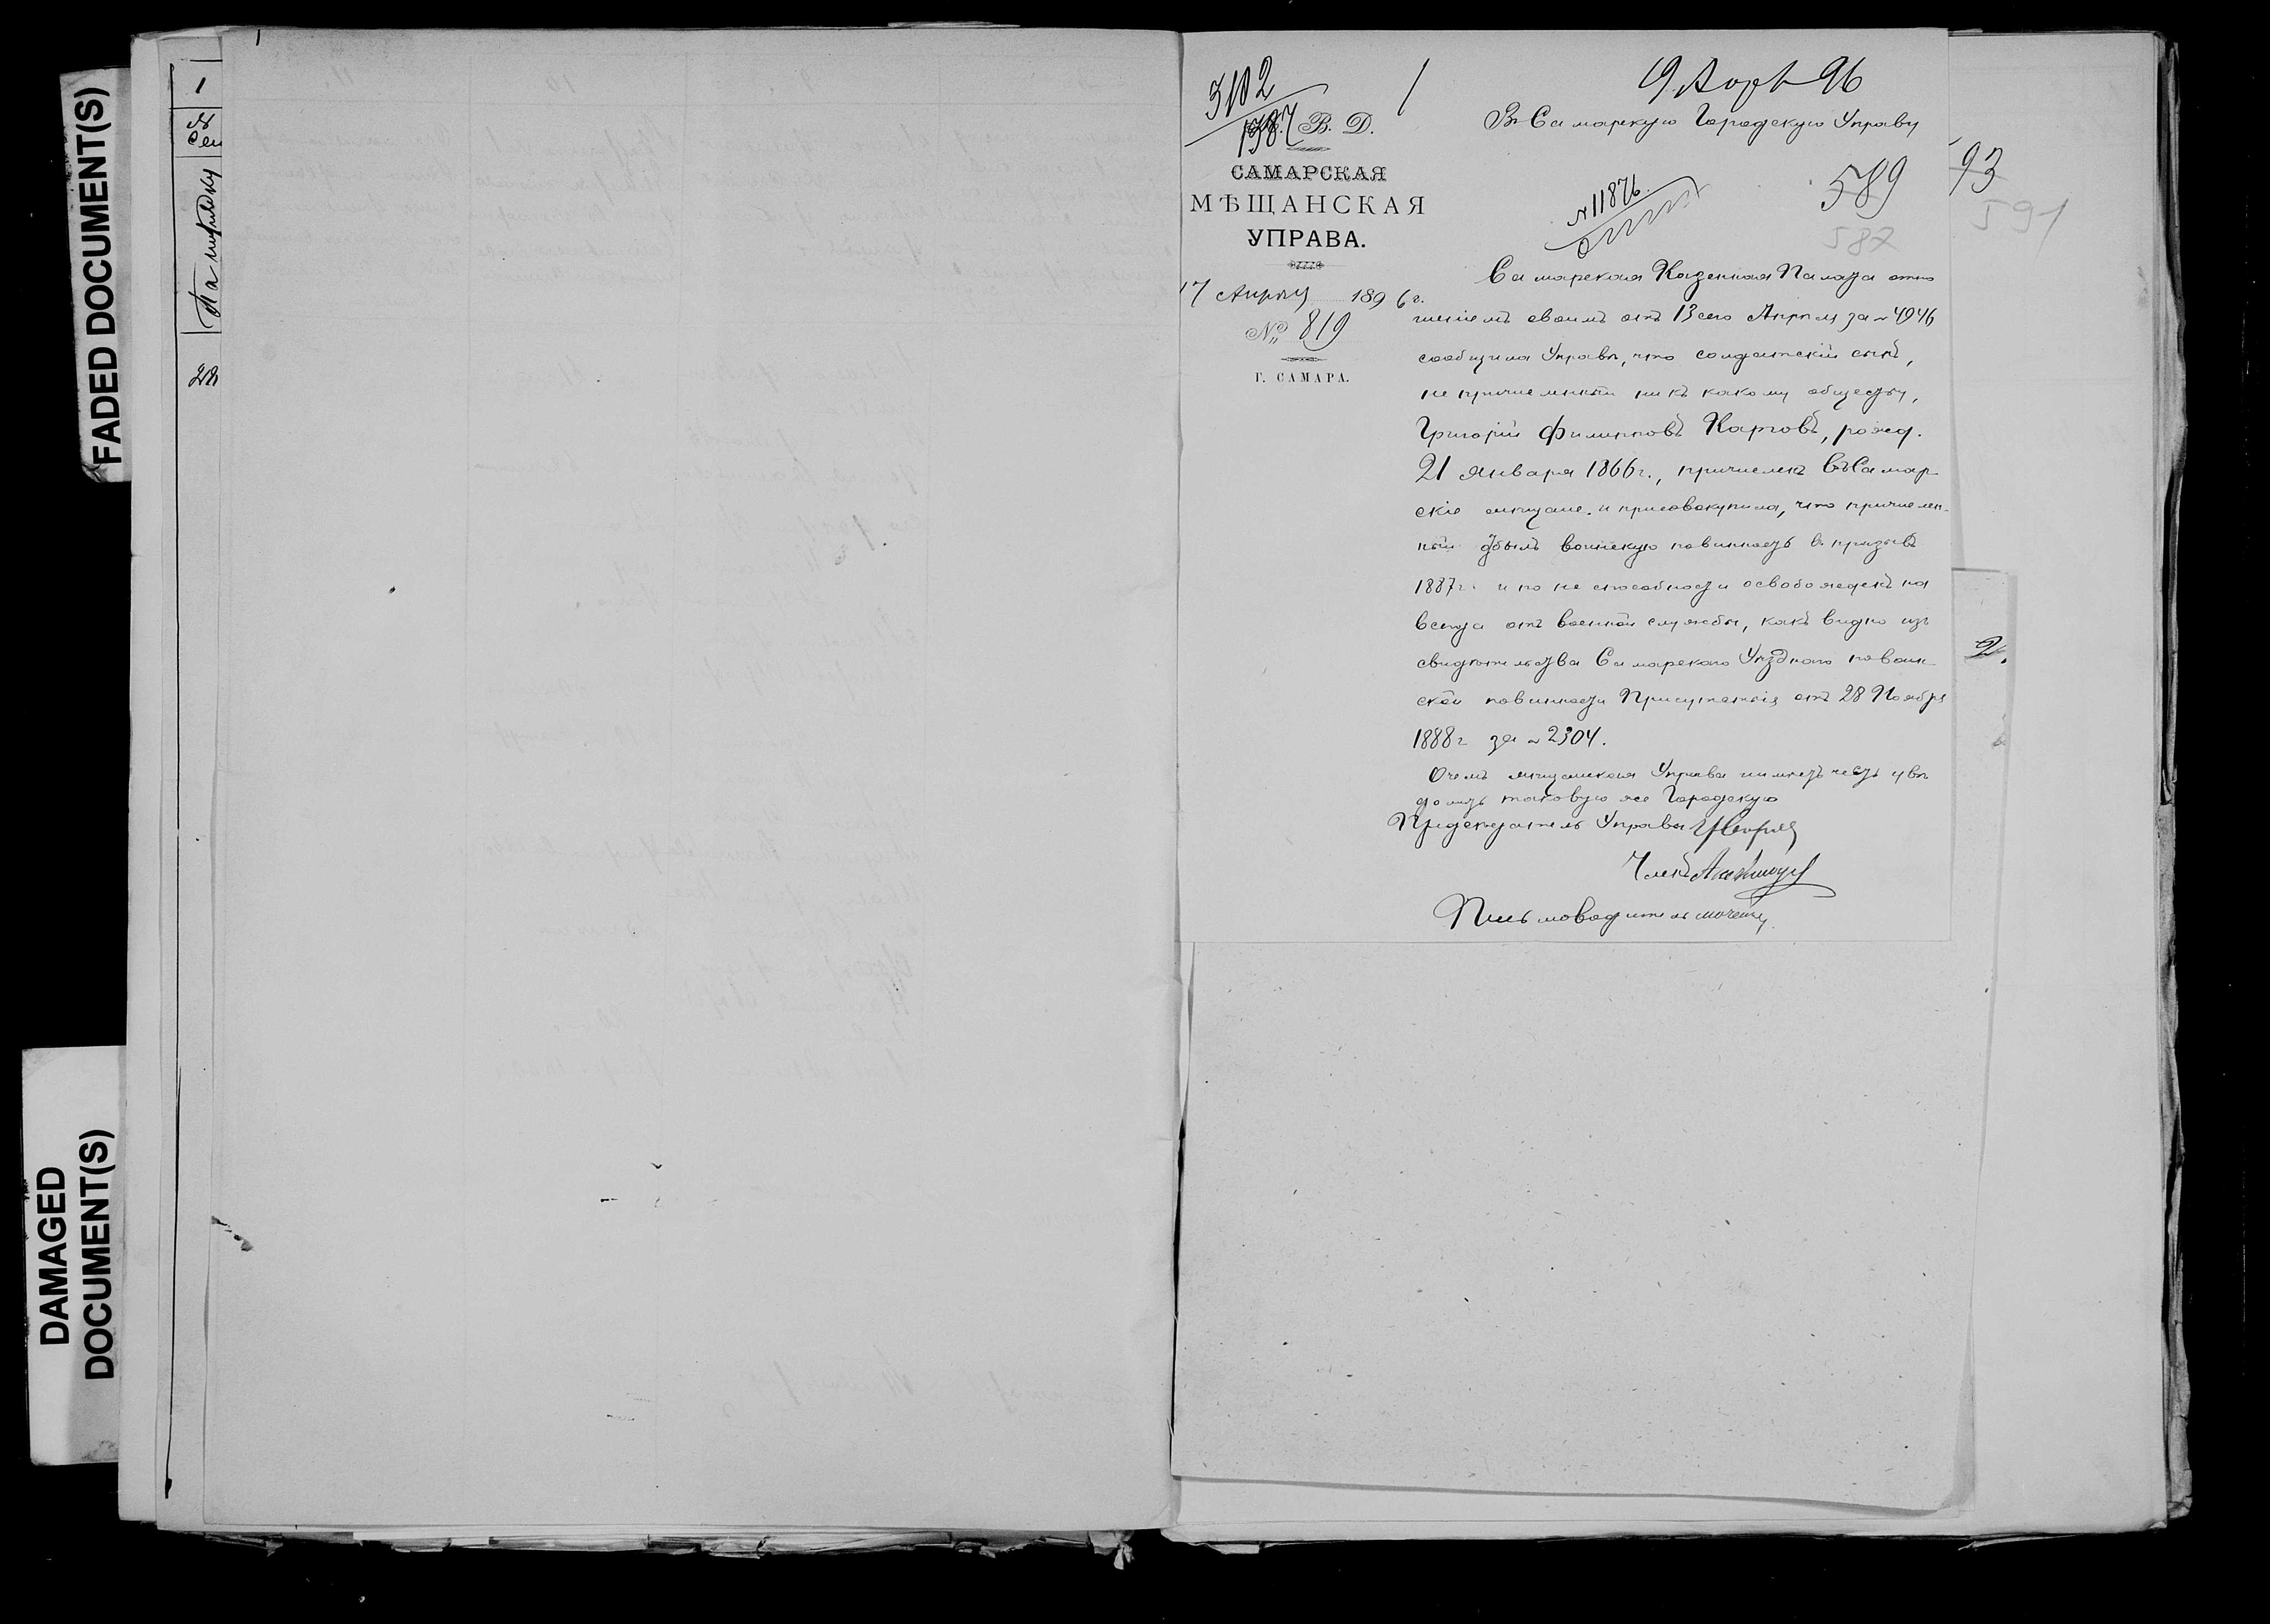 FADED DOCUMENT(S)
DAMAGED
DOCUMENT(S)
1
28
3102
1387
В. Д.
САМАРСКАЯ
МѢЩАНСКАЯ
УПРАВА.
17 Апрѣля 1896 г.
№ 819
Г. САМАРА.
1
19 Апр 96
Въ Самарскую Городскую Управу
№ 11876
589
587
93
591
Самарская Казенная Палата отно
шеніемъ своимъ отъ 13 сего Апрѣля за № 4946
сообщила Управѣ, что солдатскій сынъ,
не причисленный ни къ какому обществу,
Григорій Филипповъ Карповъ, рожд.
21 января 1866 г., причисленъ въ Самар
скіе мѣщане и присовокупила, что причислен-
ный отбылъ воинскую повинность въ призывъ
1887 г. и по не способности освобожденъ на
всегда отъ военной службы, какъ видно изъ
свидѣтельства Самарскаго Уѣзднаго по воин-
ской повинности Присутствія отъ 28 Ноября
1888 г. за № 2304.
О чемъ мѣщанская Управа имѣетъ честь увѣ
домить таковую же Городскую
Предсѣдатель Управы
Членъ
Письмоводитель
2.